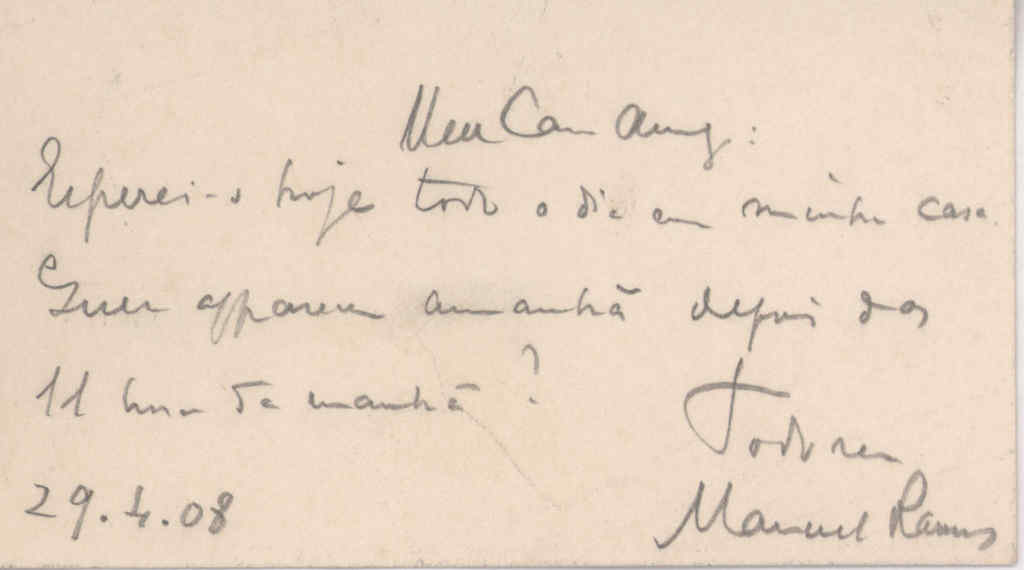 Meu Caro Amigo:
Esperei-o hoje todo o dia em minha casa.
Quer apparecer amanhã depois das
11 horas da manhã?
Todo seu
Manuel Ramos
29.4.08